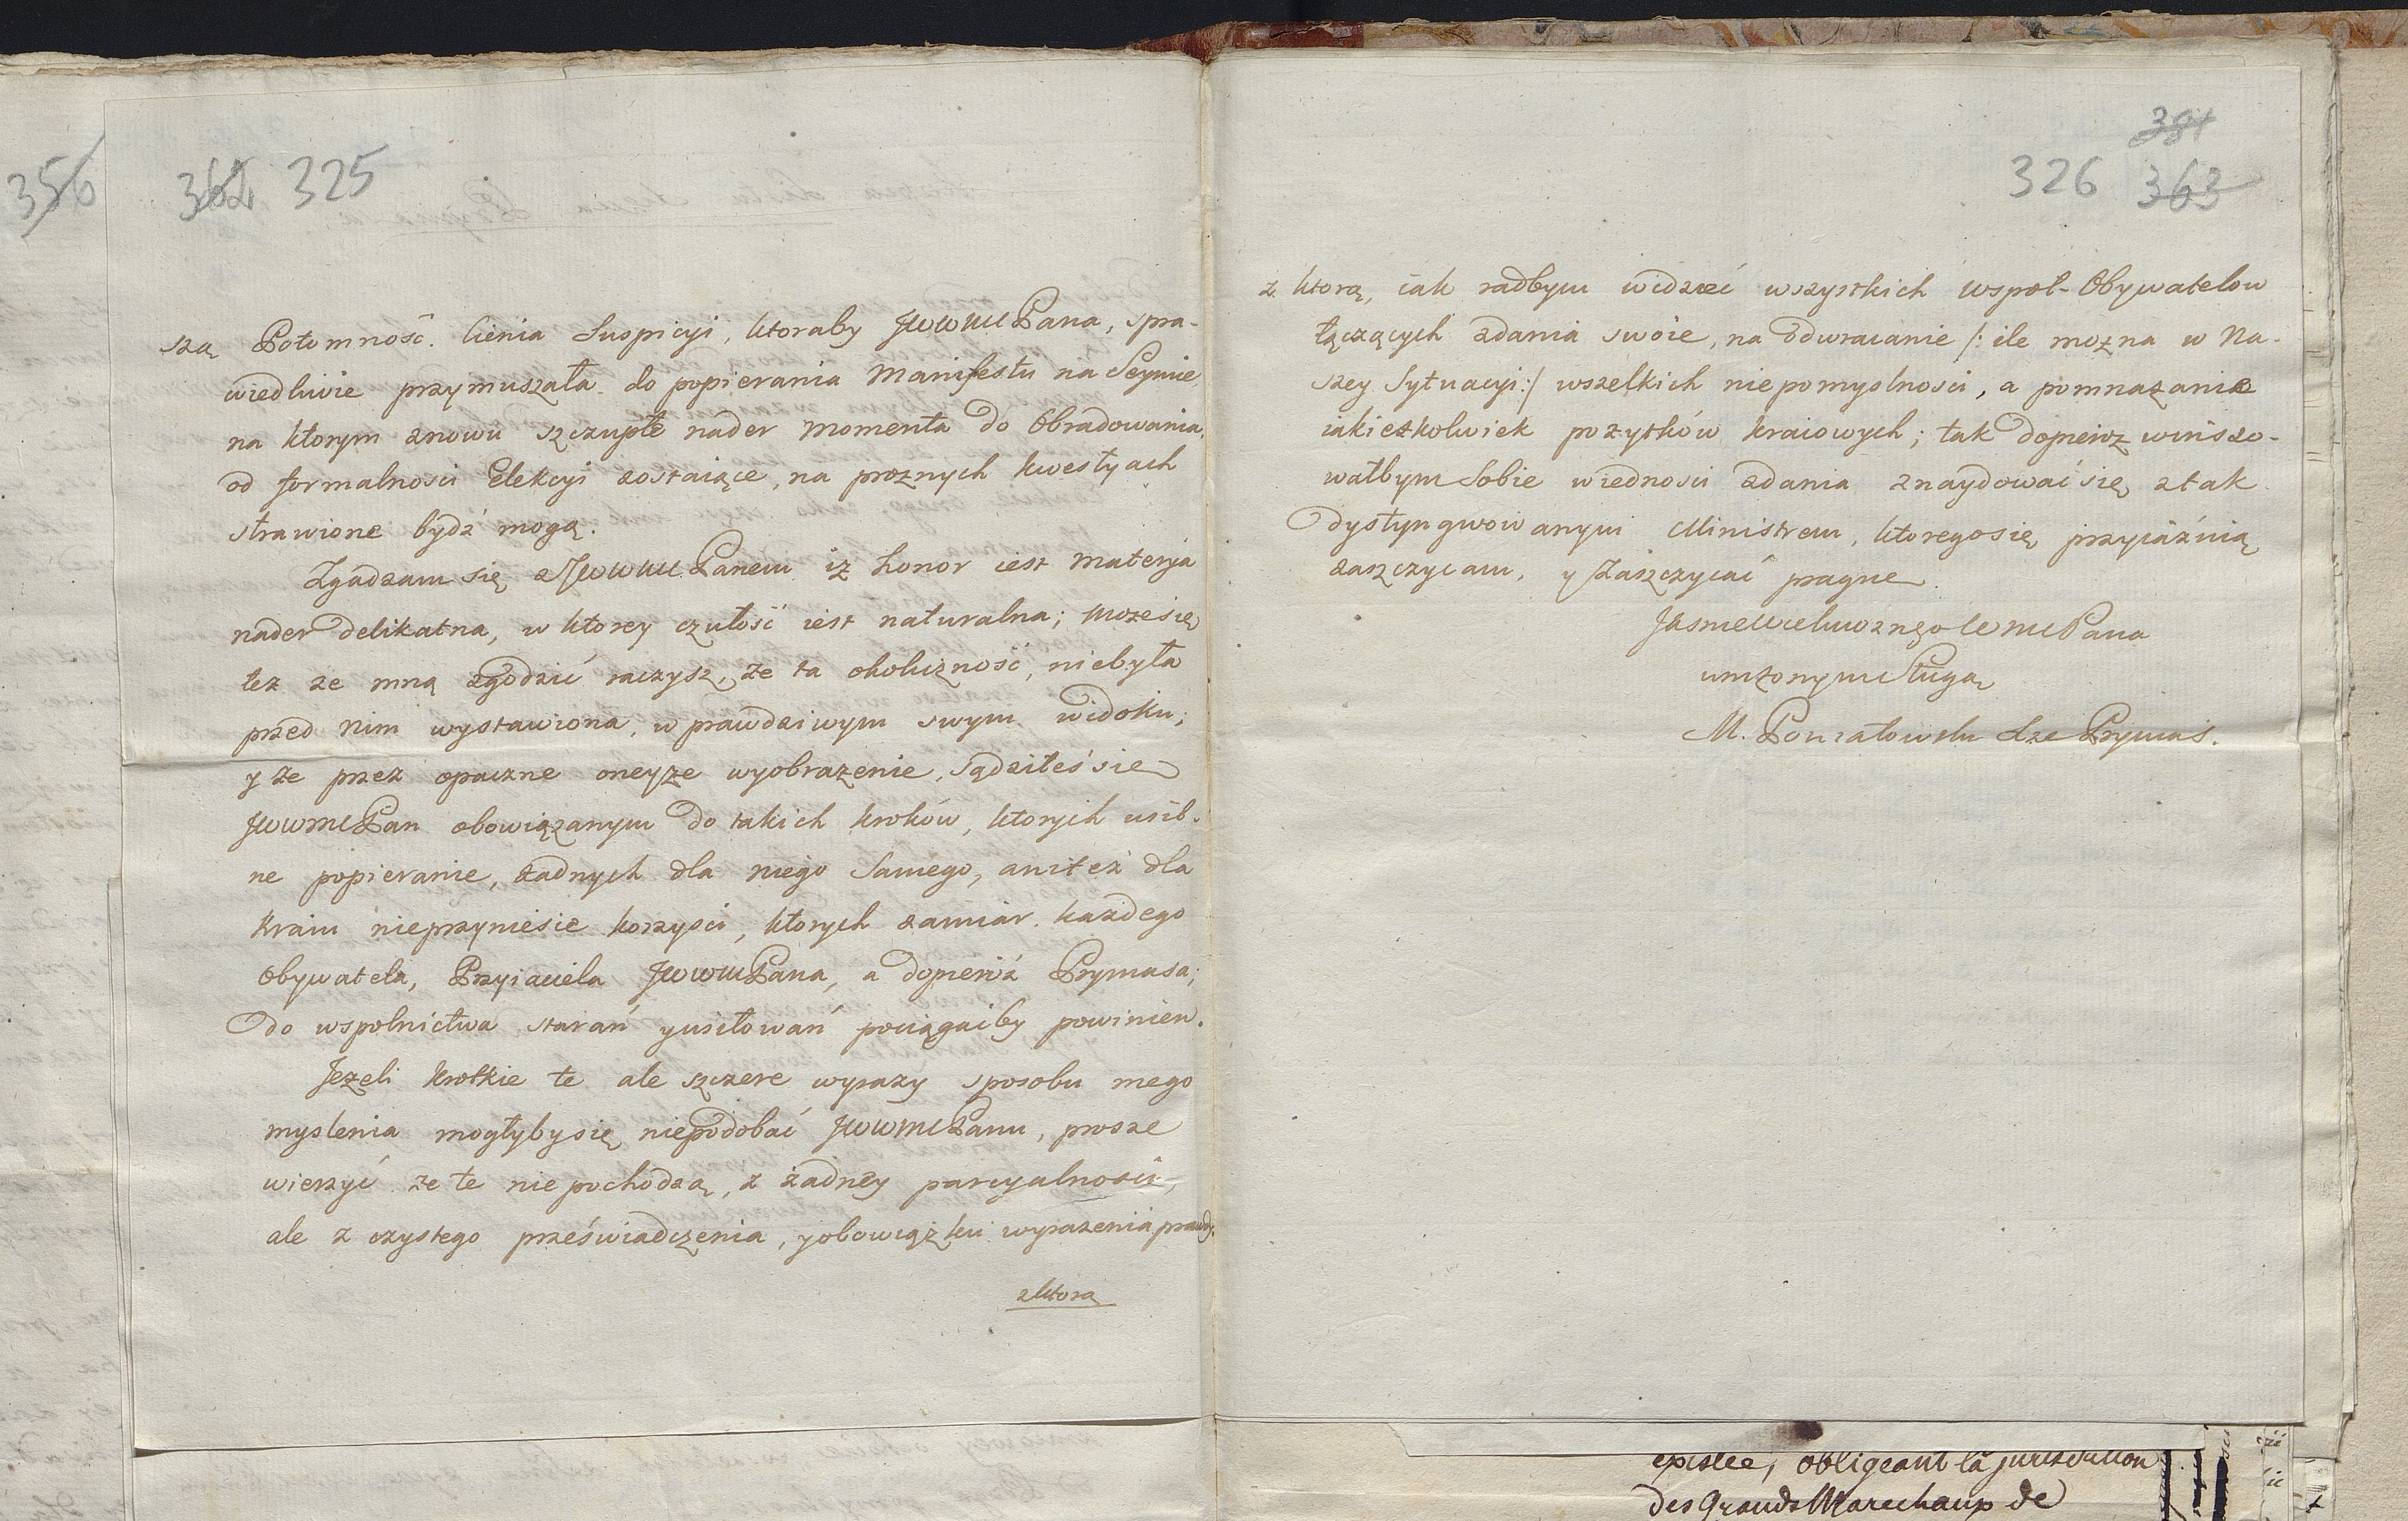 356 362 325
szą Potomność. Cienia Suspicyi, ktoraby JWWMCPana, spra-
wiedliwie przymuszała do popierania Manifestu na Seymie,
na ktorym znowu szczupłe nader momenta do Obradowania,
od formalnosci Elekcyi zostaiące, na prożnych kwestyach
strawione bydź mogą.
Zgadzam się z JWWMCPanem iż honor iest materya
nader delikatna, w ktorey czułość iest naturalna; możesię
tez ze mną zgodzić raczysz, że ta okoliczność, niebyła
przed Nim wystawiona, w prawdziwym swym widoku;
y że przez opaczne oneyże wyobrażenie, Sądziłeś się
JWWMCPan obowiązanym do takich krokow, ktorych usil-
ne popieranie, żadnych dla niego Samego, aniteż dla
Kraiu nieprzyniesie korzyści, ktorych zamiar każdego
Obywatela, Przyiaciela JWWMCPana, a dopieroż Prymasa,
do wspolnictwa starań y usiłowań pociągaćby powinien.
Jeżeli krotkie te ale szczere wyrazy sposobu mego
myslenia mogłybysię niepodobać JWWMCPanu, prosze
wierzyć że te nie pochodzą, z żadney parcyalności,
ale z czystego przeświadczenia, y obowiązku wyrażenia prawdy.
z ktorą
381
326 363
z ktorą, iak radbym widzieć wszystkich Wspoł-Obywatelow
łączących zdania swoie, na odwracanie /: ile można w Na-
szey Sytuacyi :/ wszelkich niepomyslnosci, a pomnażanie
iakieżkolwiek pożytków kraiowych; tak dopieroż winszo-
wałbym Sobie wiedności zdania znaydować się z tak
dystyngwowanym Ministrem, ktoregosię przyiaźnią
zaszczycam, y zaszczycać pragne
JasnieWielmożnego WMCPana
uniżonym Sługą
M. Poniatowski Xże Prymas.
obligeant la jurisdiction
des Grands Marechaux de